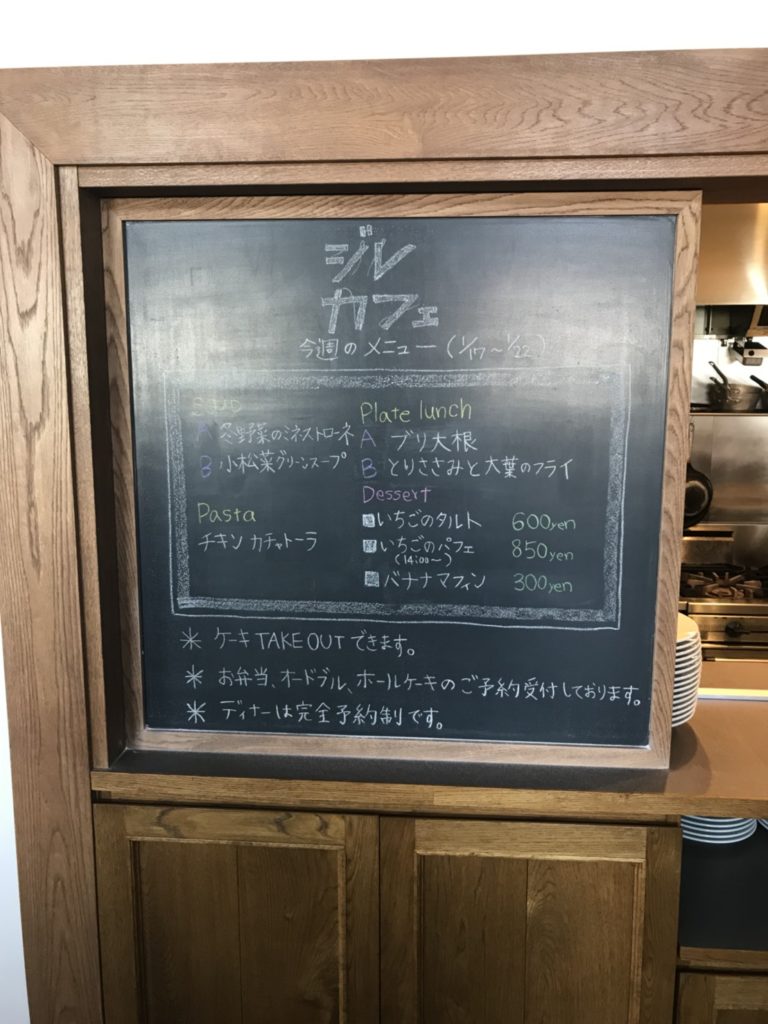 ジル
カフェ
今週のメニュー (1/17～1/22)
Soup
A 冬野菜のミネストローネ
B 小松菜グリーンスープ
Pasta
チキン カチャトーラ
Plate lunch
A ブリ大根
B とりささみと大葉のフライ
Dessert
いちごのタルト 600yen
いちごのパフェ 850yen
(14:00～)
バナナマフィン 300yen
＊ ケーキ TAKE OUT できます。
＊ お弁当、オードブル、ホールケーキのご予約受付しております。
＊ ディナーは完全予約制です。